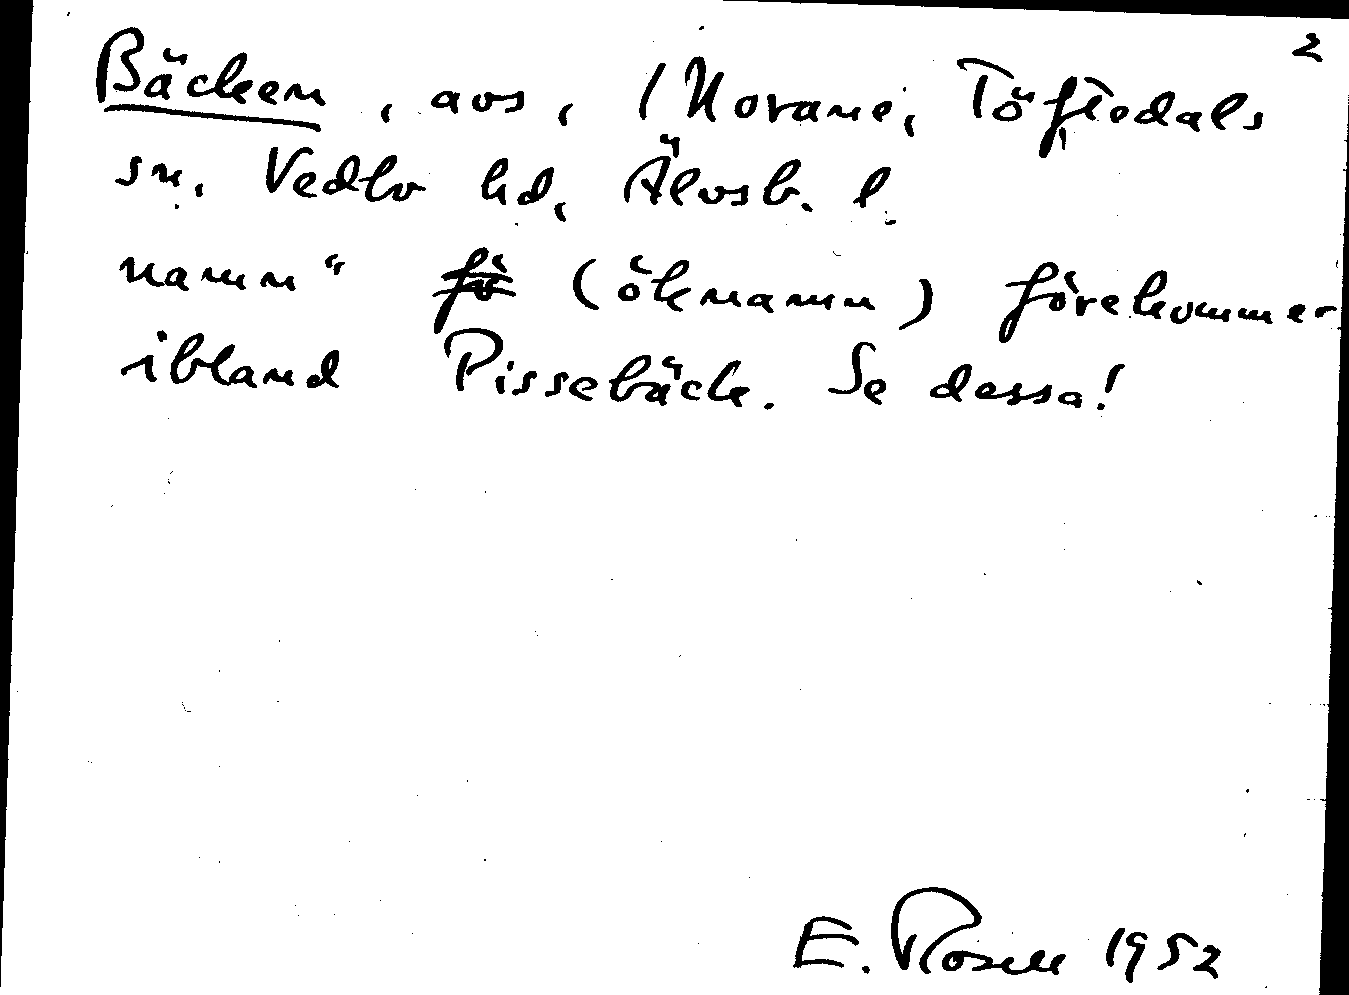 2
Bäcken, avs, 1 Norane, Töftedals
sn. Vedbo hd, Älvsb. l.
namn" fö (öknamn) förekommer
ibland Pissebäck. Se dessa!
E. Rosell 1952